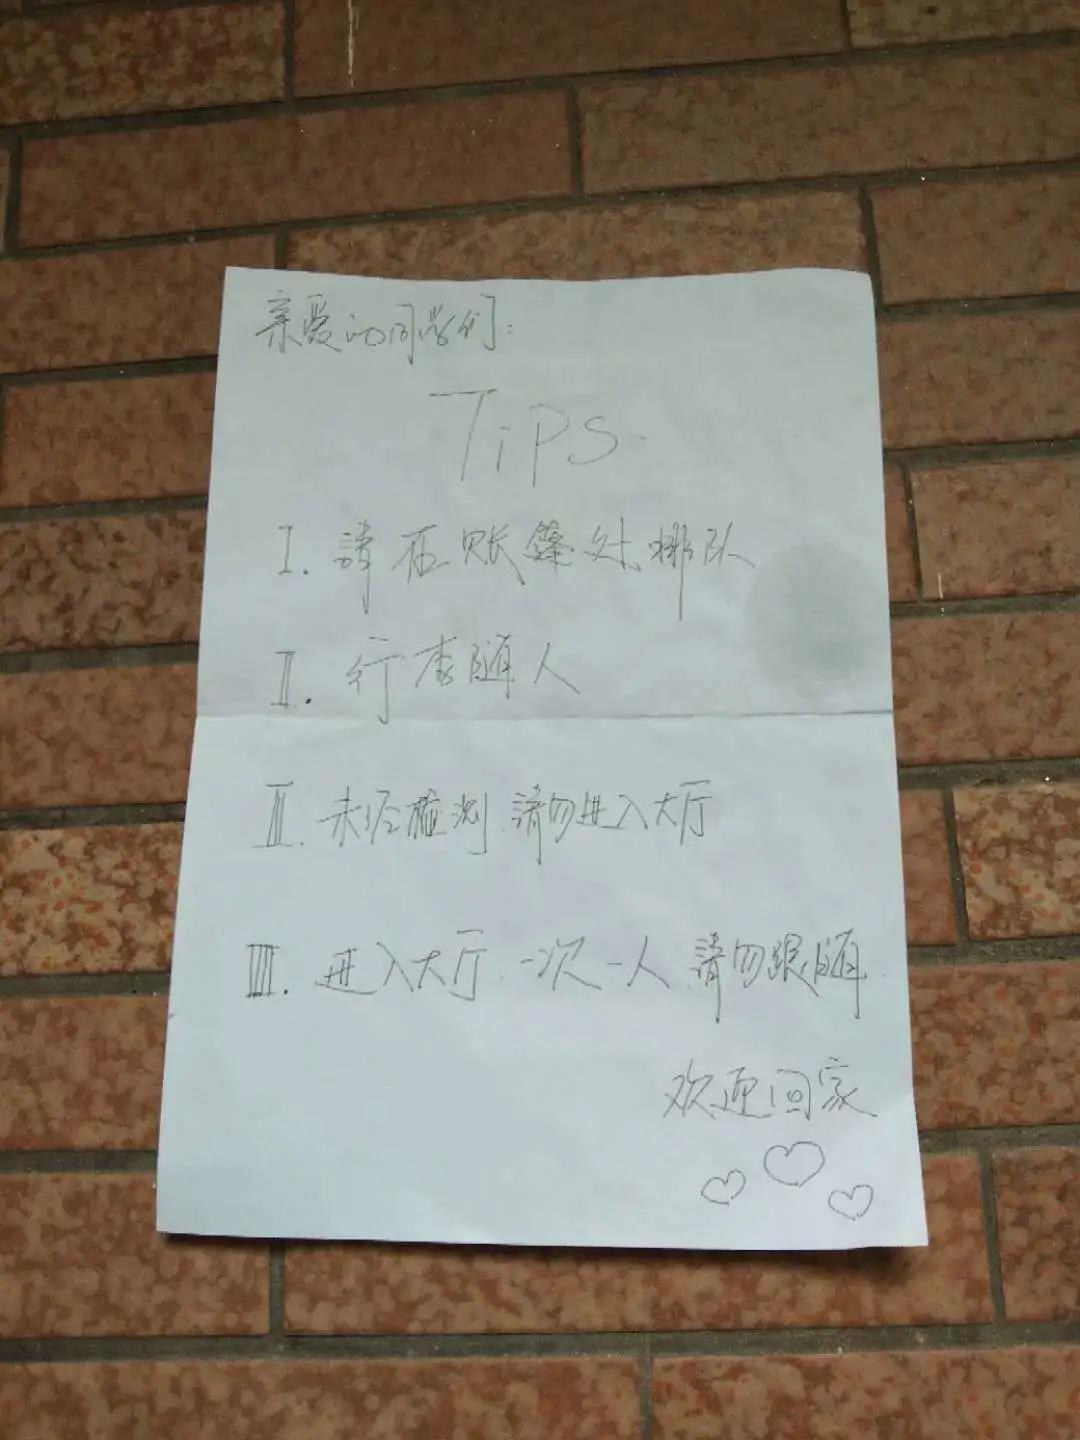 亲爱的同学们：
Tips.
I. 請在账篷处排队
II. 行李随人
III. 未经检测.請勿进入大厅
IIII. 进入大厅.一次一人 請勿跟随.
欢迎回家